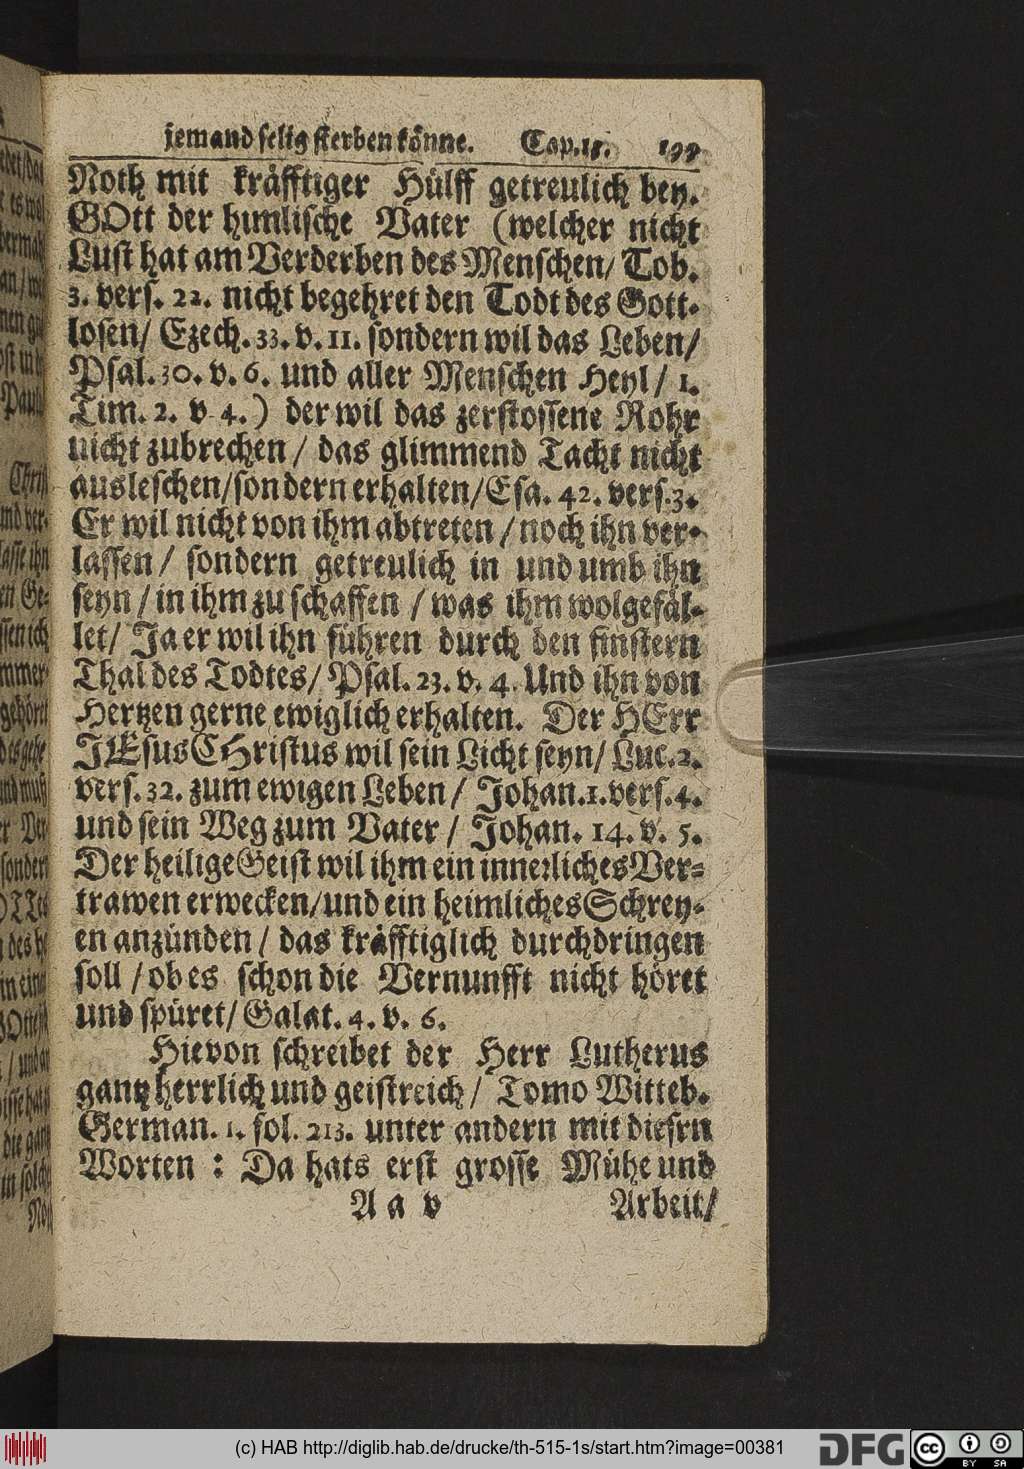 jemand selig sterben könne. Cap.15. 199
Noth mit kräfftiger Hülff getreulich bey.
GOtt der himlische Vater (welcher nicht
Lust hat am Verderben des Menschen/ Tob.
3. vers. 22. nicht begehret den Todt des Gott-
losen/ Ezech. 33. v. 11. sondern wil das Leben/
Psal. 30. v. 6. und aller Menschen Heyl / 1.
Tim. 2. v 4.) der wil das zerstossene Rohr
nicht zubrechen / das glimmend Tacht nicht
ausleschen/sondern erhalten/Esa. 42. vers.3.
Er wil nicht von ihm abtreten / noch ihn ver-
lassen / sondern getreulich in und umb ihn
seyn / in ihm zu schaffen / was ihm wolgefäl-
let/ Ja er wil ihn führen durch den finstern
Thal des Todtes/ Psal. 23. v. 4. Und ihn von
Hertzen gerne ewiglich erhalten. Der HErr
JEsus CHristus wil sein Licht seyn/ Luc. 2.
vers. 32. zum ewigen Leben / Johan.1.vers.4.
und sein Weg zum Vater / Johan. 14. v. 5.
Der heilige Geist wil ihm ein innerliches Ver-
trawen erwecken/und ein heimliches Schrey-
en anzünden / das kräfftiglich durchdringen
soll / ob es schon die Vernunfft nicht höret
und spüret/ Galat. 4. v. 6.
Hievon schreibet der Herr Lutherus
gantz herrlich und geistreich / Tomo Witteb.
German. 1. fol. 213. unter andern mit diesrn
Worten : Da hats erst grosse Mühe und
A a v Arbeit/
(c) HAB http://diglib.hab.de/drucke/th-515-1s/start.htm?image=00381
DFG
cc
BY SA